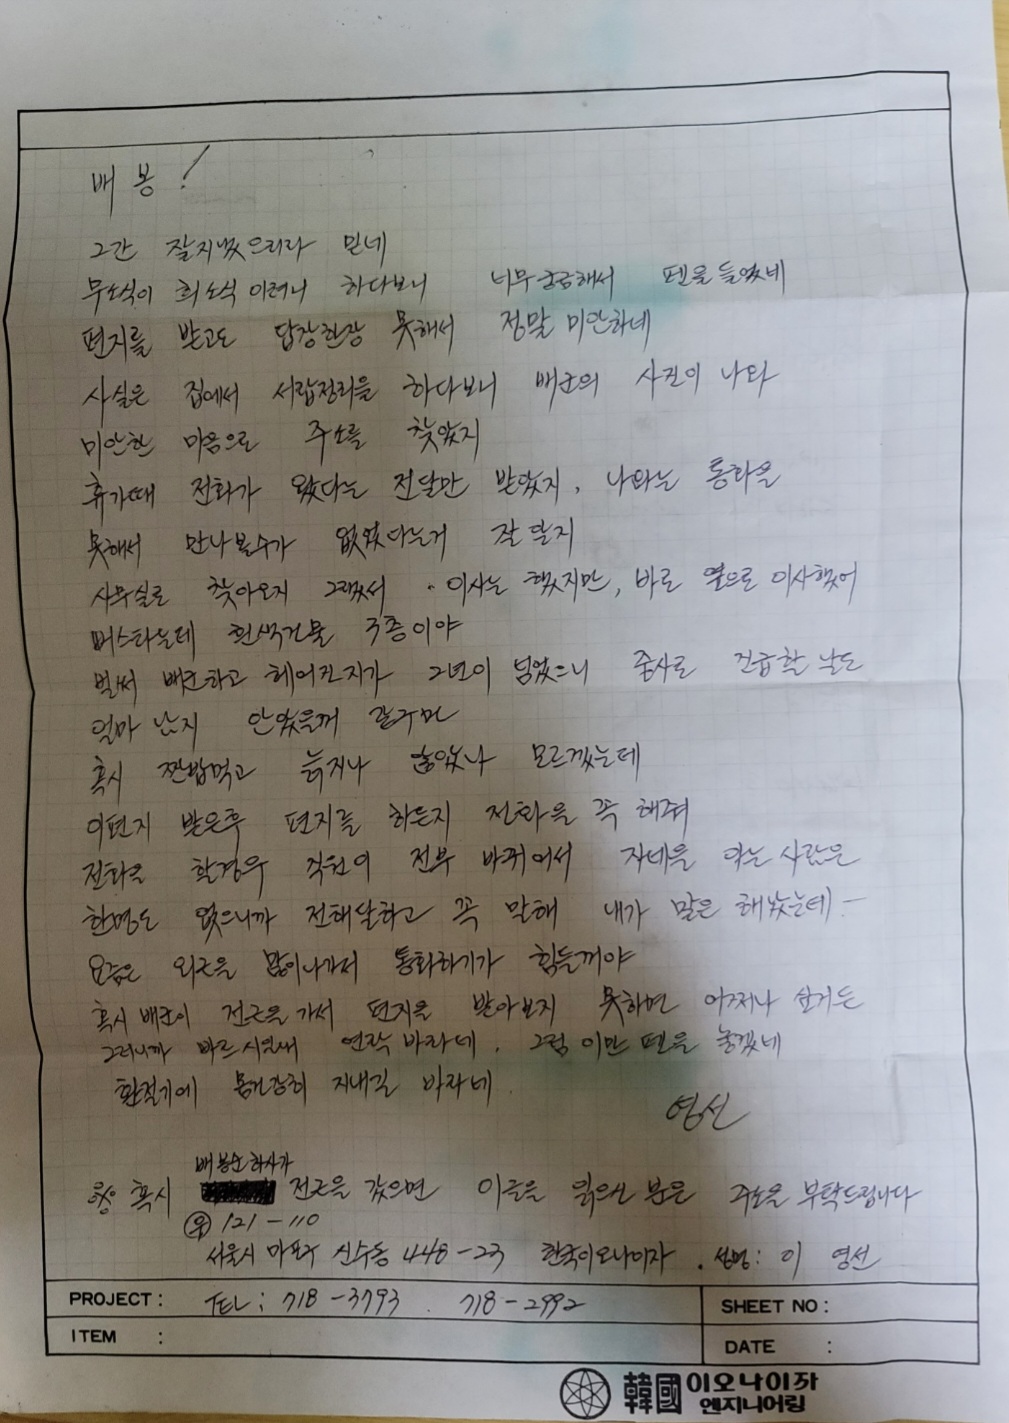 배봉!
그간 잘지냈으리라 믿네
무소식이 희소식 이려니 하다보니 너무궁금해서 펜을들었네
편지를 받고도 답장한장 못해서 정말 미안하네
사실은 집에서 서랍정리를 하다보니 배군의 사진이 나와
미안한 마음으로 주소를 찾았지
휴가때 전화가 왔다는 전달만 받았지, 나와는 통화을
못해서 만나볼수가 없었다는거 잘알지
사무실로 찾아오지 그랬서. 이사는 했지만, 바로 옆으로 이사했어
버스타는데 흰색건물 3층이야
벌써 배군하고 헤어진지가 2년이 넘었으니 중사로 진급할 날도
얼마 남지 안았을꺼 같구먼
혹시 짠밥먹고 늙지나 않았나 모르겠는데
이편지 받은후 편지를 하든지 전화을 꼭 해줘
전화을 할경우 직원이 전부 바뀌어서 자네을 아는 사람은
한명도 없으니까 전해달하고 꼭 말해 내가 말은 해놨는데-
요즘은 외근을 많이나가서 통화하기가 힘들꺼야
혹시 배군이 전근을가서 편지을 받아보지 못하면 어쩌나 싶거든
그러니까 바르시일내 연락 바라네. 그럼 이만 펜을 놓겠네
환절기에 몸건강히 지내길 바라네.
영선
배봉순하사가
혹시 전근을 갔으면 이글을 읽으신 분은 주소을 부탁드립니다
㉾ 121-110
서울시 마포구 신수동 448-23 한국이오나이자. 성명: 이 영선
PROJECT: TEL: 718-3793. 718-2992 SHEET NO:
ITEM : DATE :
韓國이오나이좌
엔지니어링